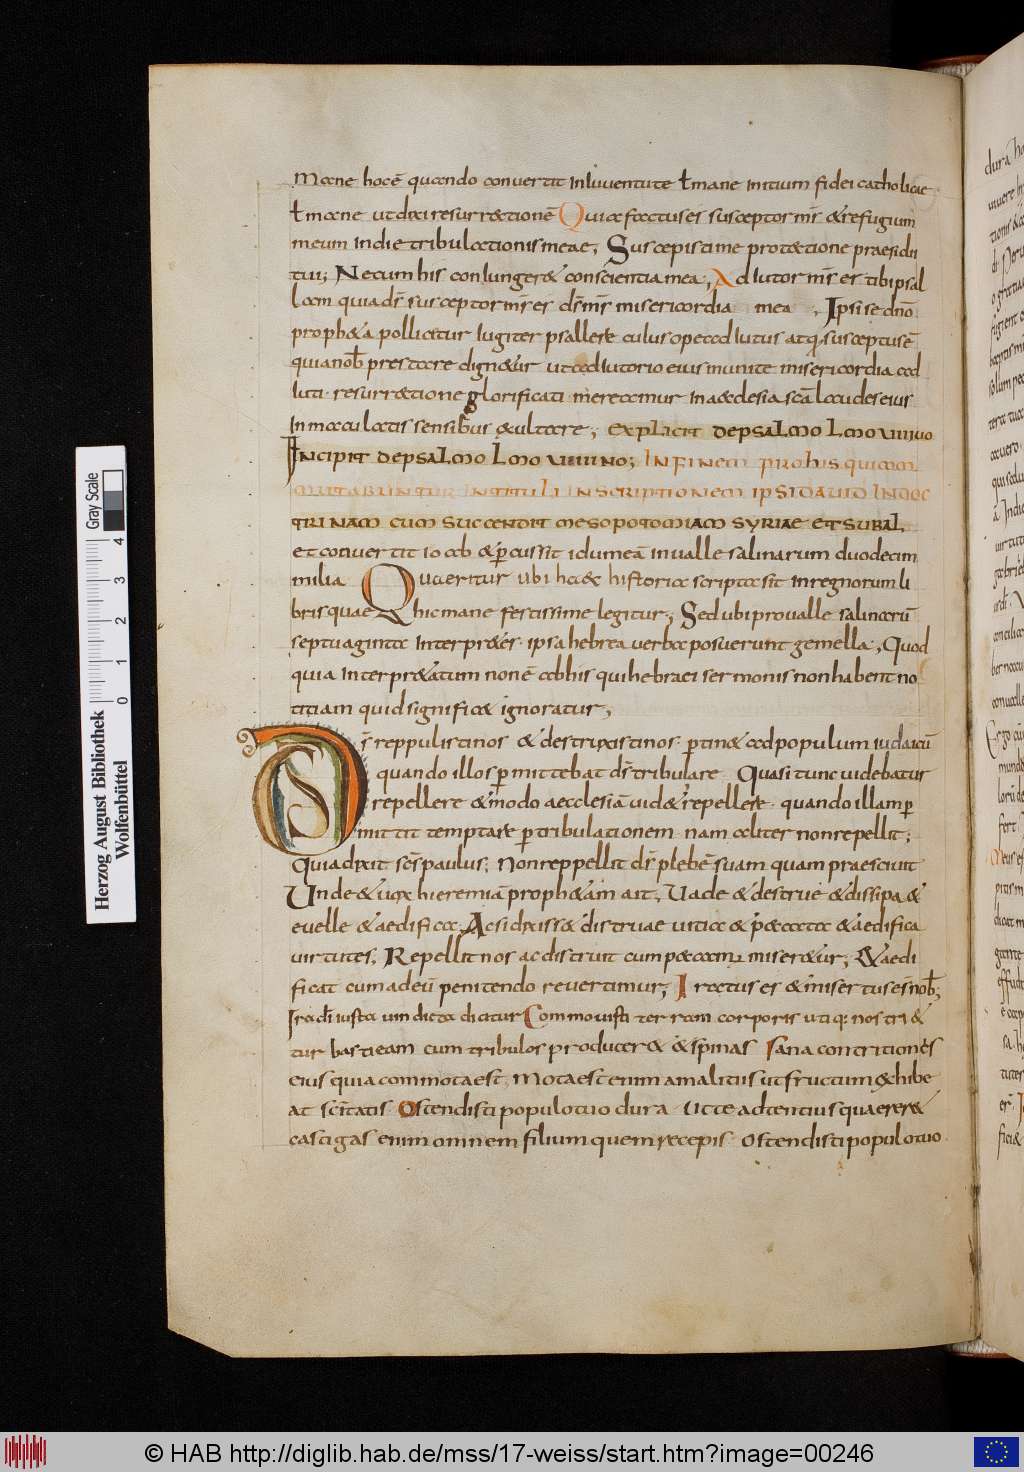 mane hoc ē quando convertit in iuventute ł mane initium fidei catholicae
ł mane ut dixi resurrectionē Quia factus es susceptor ms̄ & refugium
meum in die tribulationis meae; Suscepisti me protectione praesidii
tui; Necum his coniungeret conscientia mea; Adiutor ms̄ es tibi psal
lam quia ds̄ susceptor ms̄ es ds̄ ms̄ misericordia mea; Ipsi se dn̄o
propheta pollicetur iugiter psallere cuius ope adiutus atq; susceptus ē
quia nob̄ prestare dignetur ut adiutorio eius munite misericordia ad
iuti resurrectione glorificati mereamur in aecclesia sc̄a laudes eius
inmaculatis sensibus exultare; EXPLICIT DE PSALMO LMO VIIIVO
INCIPIT DE PSALMO LMO VIIII NO; IN FINEM PRO HIS QUI COM
MUTABUNTUR IN TITULI INSCRIPTIONEM IPSI DAVID IN DOC
TRINAM CUM SUCCENDIT MESOPOTAMIAM SYRIAE ET SUBAL,
et convertit ioab & p̱cussit idumeā in valle salinarum duodecim
milia Quaeritur ubi haec historia scripta sit in regnorum li
bris quae hic mane fertissime legitur; Sed ubi pro valle salinarū
septuaginta interpretes ipsa hebrea verba posuerunt gemella; Quod
quia interpretatum non ē ab his qui hebraei sermonis non habent no
titiam quid significet ignoratur;
Ds̄ reppulisti nos & destruxisti nos p̱tinet ad populum iudaicū
quando illos p̱mittebat ds̄ tribulare Quasi tunc videbatur
repellere & modo aecclesiā videtur repellere quando illam p̱
mittit temptare p̱ tribulationem nam aliter non repellit;
Quia dixit sc̄s paulus; Non reppellit ds̄ plebē suam quam praesciuit
Unde & vox hieremiā prophetam ait; Vade & destrue & dissipa &
evelle & aedifica; Ac si dixisset distruae vitia & peccata & aedifica
virtutes; Repellit nos ac distruit cum peccamus miseretur; & aedi
ficat cum ad eū penitendo revertimur; Iratus es & misertus es nob̄;
Ira di iusta vindicta dicitur Commovisti terram corporis utiq; nostri &
tur bastieam cum tribulos produceret & spinas Sana contritiones
eius quia commota est; Mota est enim a malitiis ut fructum exhibe
at sc̄itatis Ostendisti populo tuo dura Ut te adtentius quaereret
castigas enim omnem filium quem recepis Ostendisti populo tuo
Herzog August Bibliothek
Wolfenbüttel
Gray Scale
0 1 2 3 4
© HAB http://diglib.hab.de/mss/17-weiss/start.htm?image=00246